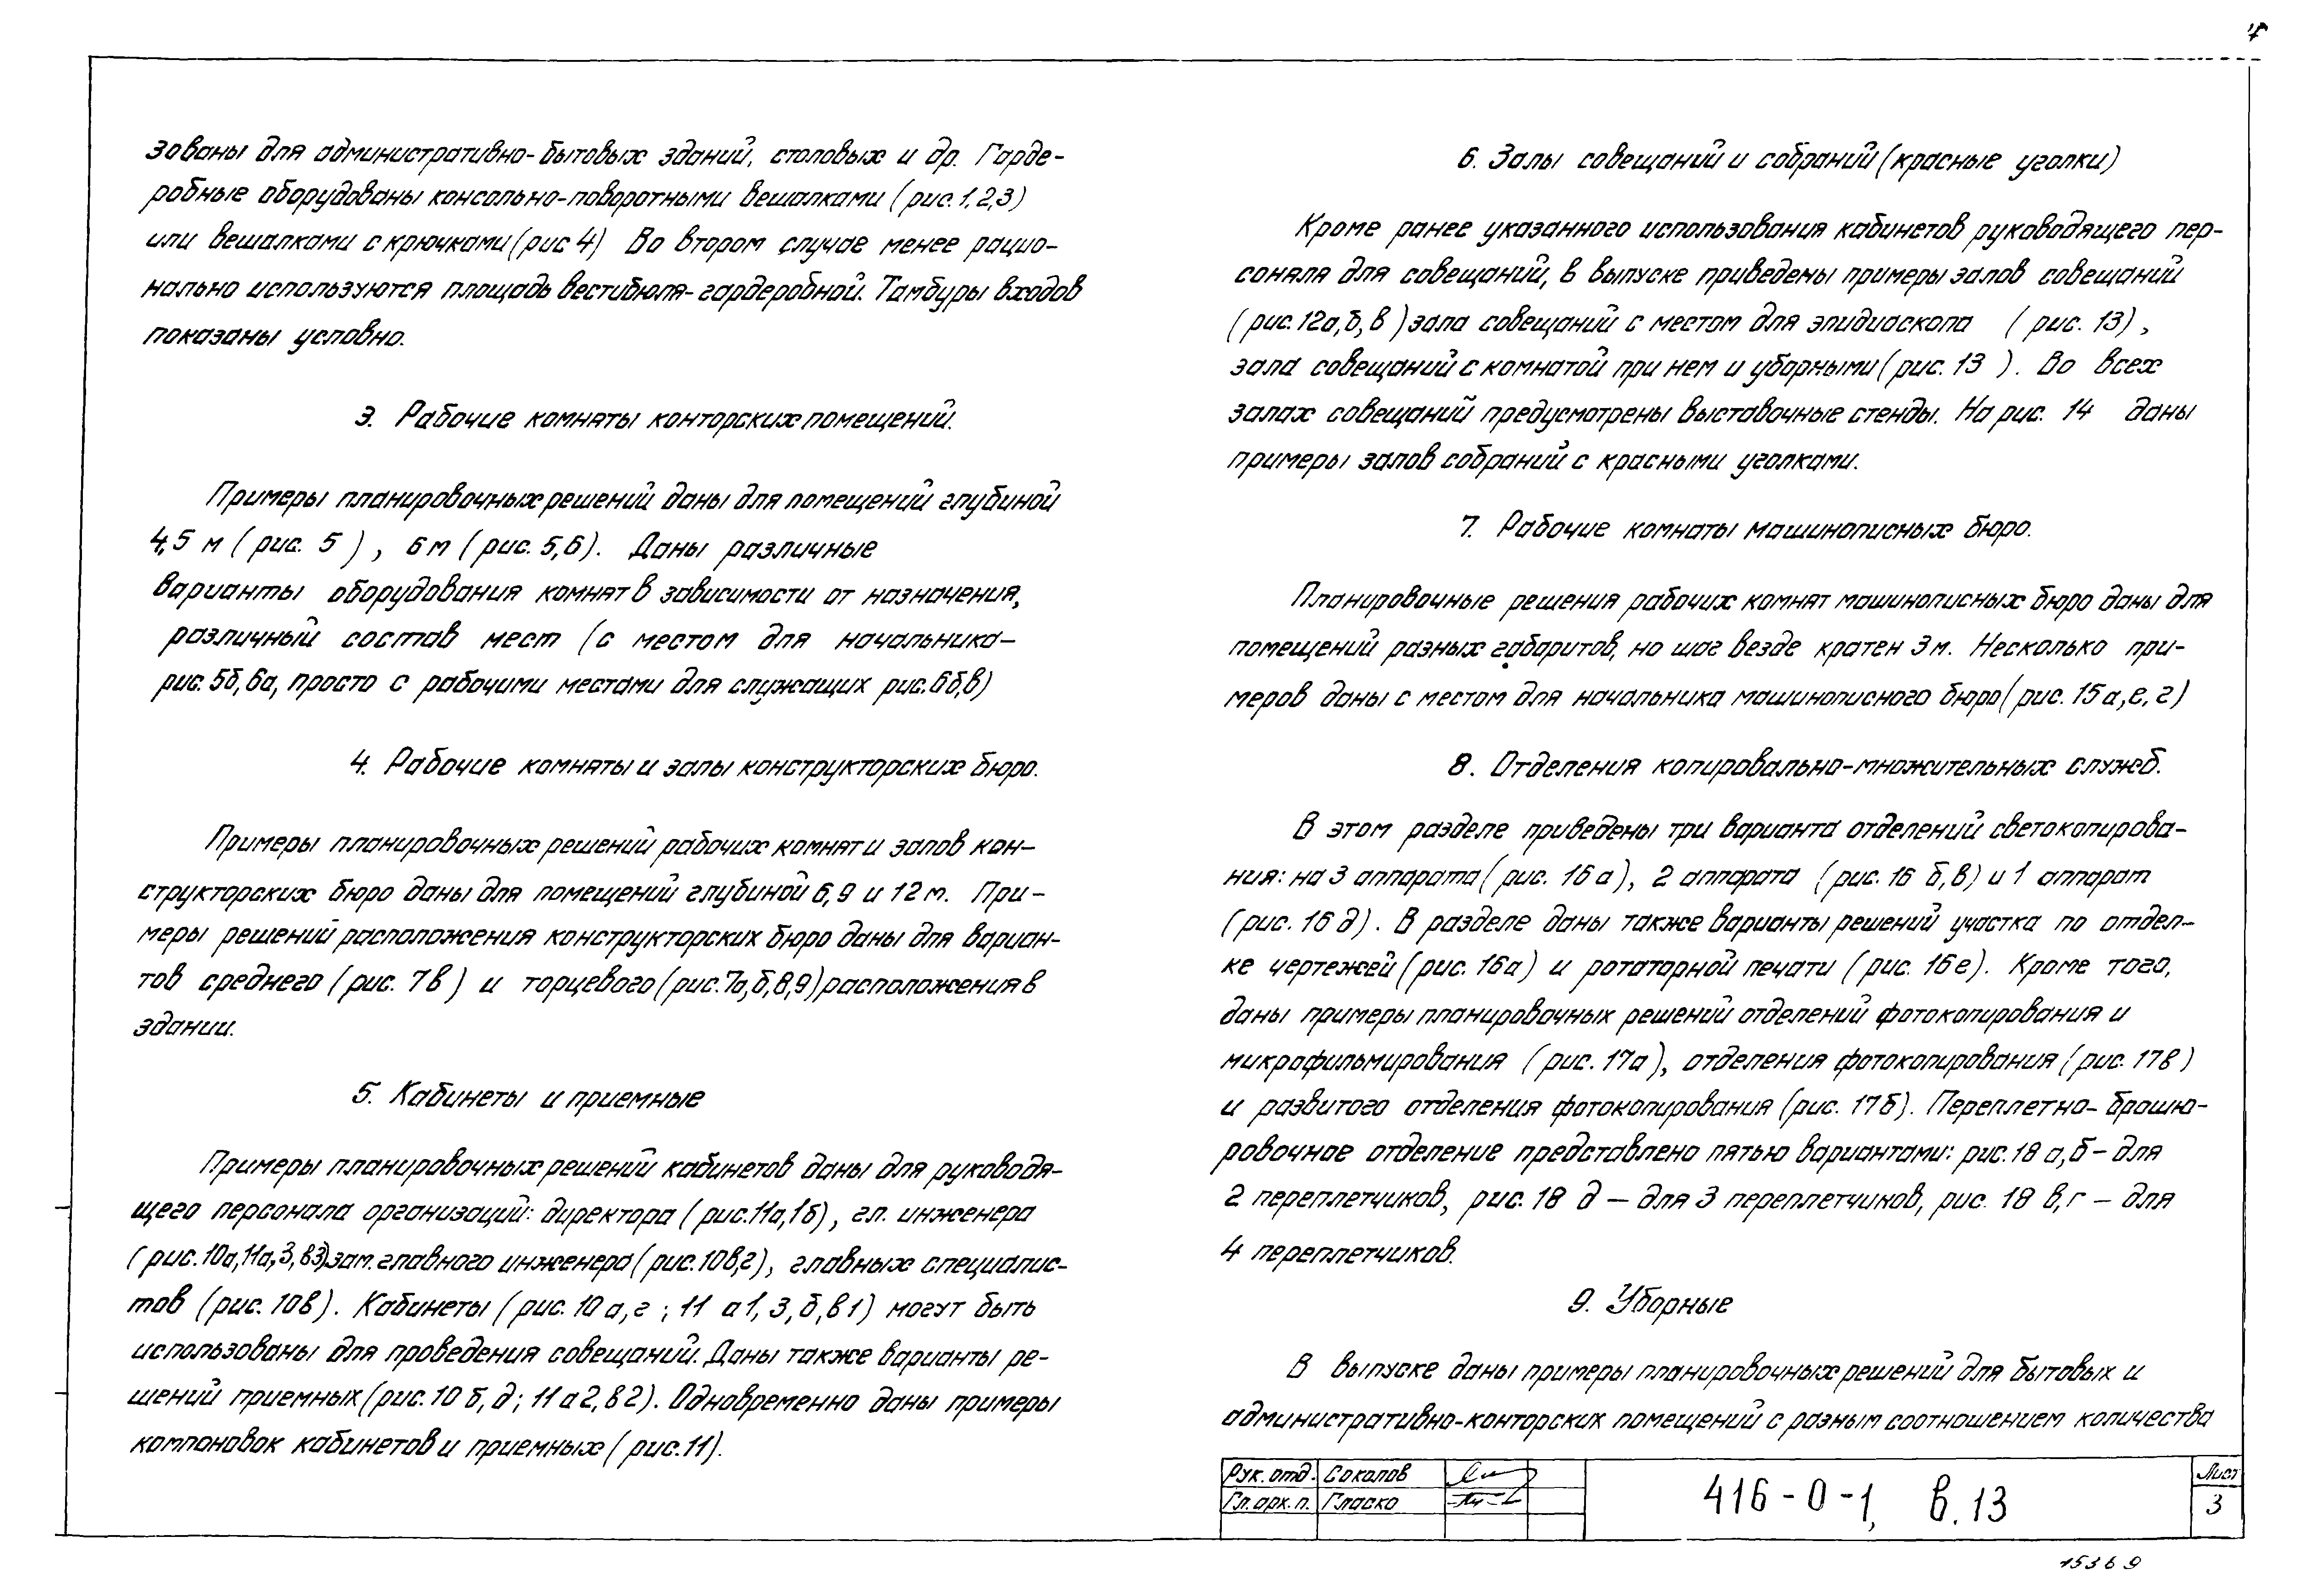 зованы для административно-бытовых зданий, столовых и др. Гарде-
робные оборудованы консольно-поворотными вешалками (рис. 1,2,3)
или вешалками с крючками (рис 4) Во втором случае менее рацио-
нально используются площадь вестибюля-гардеробной. Тамбуры входов
показаны условно.
3. Рабочие комнаты конторских помещений.
Примеры планировочных решений даны для помещений глубиной
4,5 м (рис. 5 ), 6 м (рис. 5,6). Даны различные
варианты оборудования комнат в зависимости от назначения,
различный состав мест (с местом для начальника-
рис. 5б, 6а, просто с рабочими местами для служащих рис. 6б,в)
4. Рабочие комнаты и залы конструкторских бюро.
Примеры планировочных решений рабочих комнат и залов кон-
структорских бюро даны для помещений глубиной 6, 9 и 12 м. При-
меры решений расположения конструкторских бюро даны для вариан-
тов среднего (рис. 7в) и торцевого (рис. 7а,б,8,9) расположения в
здании.
5. Кабинеты и приемные
Примеры планировочных решений кабинетов даны для руководя-
щего персонала организаций: директора (рис. 11а, 1б), гл. инженера
(рис. 10а, 11а, 3, в3) зам. главного инженера (рис. 10в,г), главных специалис-
тов (рис. 10в). Кабинеты (рис. 10 а, г ; 11 а1, 3, б, в1) могут быть
использованы для проведения совещаний. Даны также варианты ре-
шений приемных (рис. 10 б, д; 11 а2, в2). Одновременно даны примеры
компоновок кабинетов и приемных (рис. 11).
6. Залы совещаний и собраний (красные уголки)
Кроме ранее указанного использования кабинетов руководящего пер-
сонала для совещаний, в выпуске приведены примеры залов совещаний
(рис. 12а, б, в ) зала совещаний с местом для эпидиаскопа ( рис. 13) ,
зала совещаний с комнатой при нем и уборными (рис. 13 ). Во всех
залах совещаний предусмотрены выставочные стенды. На рис. 14 даны
примеры залов собраний с красными уголками.
7. Рабочие комнаты машинописных бюро.
Планировочные решения рабочих комнат машинописных бюро даны для
помещений разных габаритов, но шаг везде кратен 3 м. Несколько при-
меров даны с местом для начальника машинописного бюро (рис. 15 а, е, г)
8. Отделения копировально-множительных служб.
В этом разделе приведены три варианта отделений светокопирова-
ния: на 3 аппарата (рис. 16 а), 2 аппарата (рис. 16 б, в) и 1 аппарат
(рис. 16 д). В разделе даны также варианты решений участка по отдел-
ке чертежей (рис. 16а) и ротаторной печати (рис. 16е). Кроме того,
даны примеры планировочных решений отделений фотокопирования и
микрофильмирования (рис. 17а), отделения фотокопирования (рис. 17в)
и развитого отделения фотокопирования (рис. 17б). Переплетно-брошю-
ровочное отделение представлено пятью вариантами: рис. 18 а, б – для
2 переплетчиков, рис. 18 д – для 3 переплетчиков, рис. 18 в, г – для
4 переплетчиков.
9. Уборные
В выпуске даны примеры планировочных решений для бытовых и
административно-конторских помещений с разным соотношением количества
Рук. отд. Соколов
Гл. арх. п. Гласко
416-0-1, в.13
Лист
3
15369